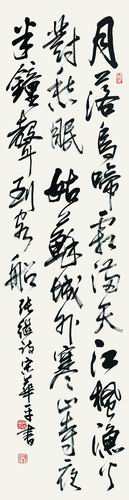 月落烏啼霜滿天江楓漁火
對愁眠姑蘇城外寒山寺夜
半鐘聲到客船
張繼詩宋華平書